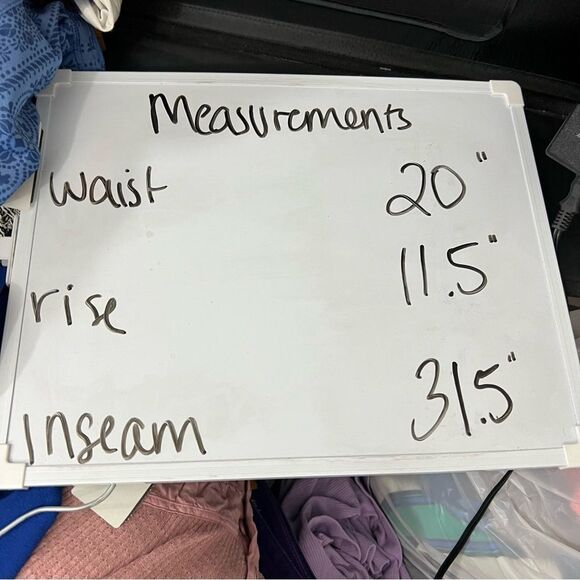 Measurements
waist 20"
rise 11.5"
Inseam 31.5"